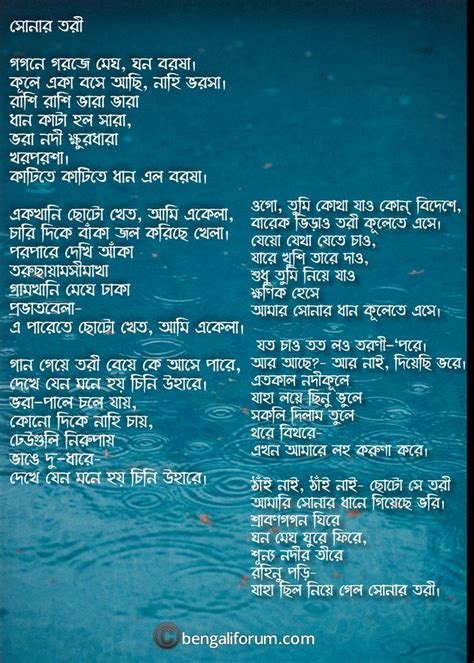 সোনার তরী
গগনে গরজে মেঘ, ঘন বরষা।
কূলে একা বসে আছি, নাহি ভরসা।
রাশি রাশি ভারা ভারা
ধান কাটা হল সারা,
ভরা নদী ক্ষুরধারা
খরপরশা।
কাটিতে কাটিতে ধান এল বরষা।
একখানি ছোটো খেত, আমি একেলা,
চারি দিকে বাঁকা জল করিছে খেলা।
পরপারে দেখি আঁকা
তরুছায়ামসীমাখা
গ্রামখানি মেঘে ঢাকা
প্রভাতবেলা-
এ পারেতে ছোটো খেত, আমি একেলা।
গান গেয়ে তরী বেয়ে কে আসে পারে,
দেখে যেন মনে হয় চিনি উহারে।
ভরা-পালে চলে যায়,
কোনো দিকে নাহি চায়,
ঢেউগুলি নিরুপায়
ভাঙে দু-ধারে-
দেখে যেন মনে হয় চিনি উহারে।
ওগো, তুমি কোথা যাও কোন্ বিদেশে,
বারেক ভিড়াও তরী কূলেতে এসে।
যেয়ো যেথা যেতে চাও,
যারে খুশি তারে দাও,
শুধু তুমি নিয়ে যাও
ক্ষণিক হেসে
আমার সোনার ধান কূলেতে এসে।
যত চাও তত লও তরণী-'পরে।
আর আছে?- আর নাই, দিয়েছি ভরে।
এতকাল নদীকূলে
যাহা লয়ে ছিনু ভুলে
সকলি দিলাম তুলে
থরে বিথরে-
এখন আমারে লহ করুণা করে।
ঠাঁই নাই, ঠাঁই নাই- ছোটো সে তরী
আমারি সোনার ধানে গিয়েছে ভরি।
শ্রাবণগগন ঘিরে
ঘন মেঘ ঘুরে ফিরে,
শূন্য নদীর তীরে
রহিনু পড়ি-
যাহা ছিল নিয়ে গেল সোনার তরী।
© bengaliforum.com